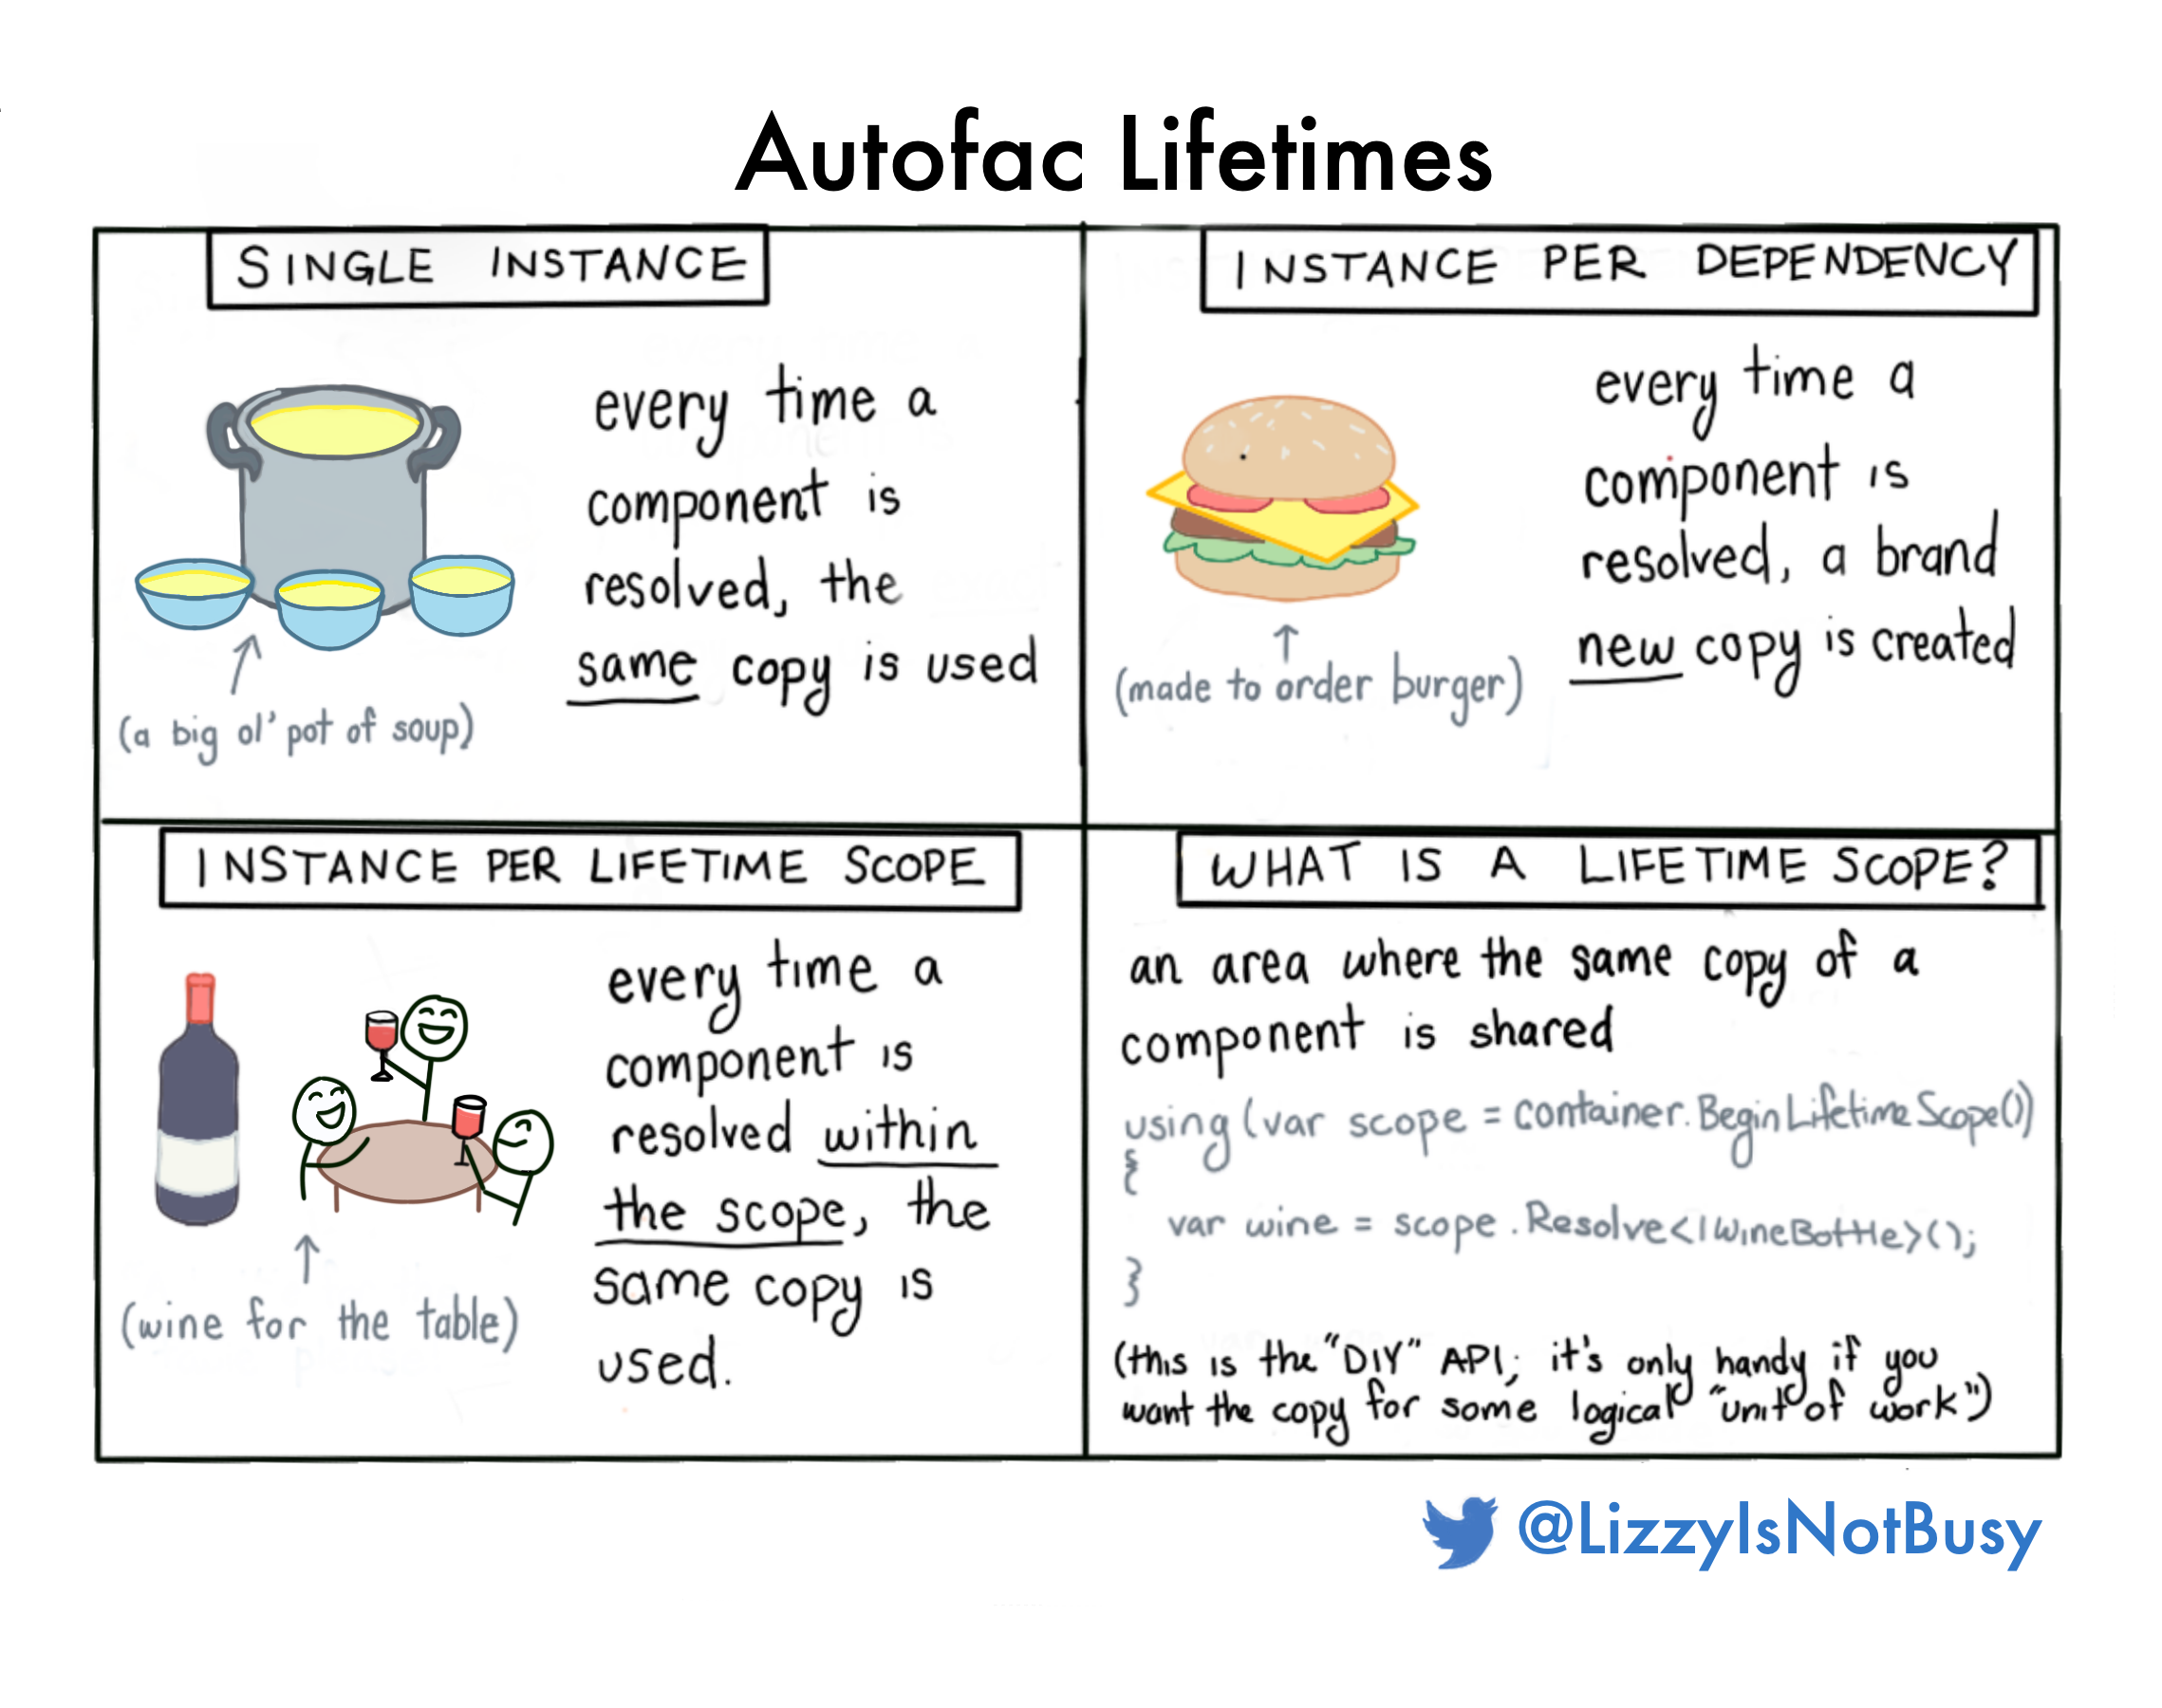 Autofac Lifetimes
SINGLE INSTANCE
every time a
component is
resolved, the
same copy is used
(a big ol' pot of soup)
INSTANCE PER DEPENDENCY
every time a
component is
resolved, a brand
new copy is created
(made to order burger)
INSTANCE PER LIFETIME SCOPE
every time a
component is
resolved within
the scope, the
same copy is
used.
(wine for the table)
WHAT IS A LIFETIME SCOPE?
an area where the same copy of a
component is shared
using (var scope = container.BeginLifetimeScope())
{
var wine = scope.Resolve<IWineBottle>();
}
(this is the "DIY" API; it's only handy if you
want the copy for some logical "unit of work")
@LizzyIsNotBusy